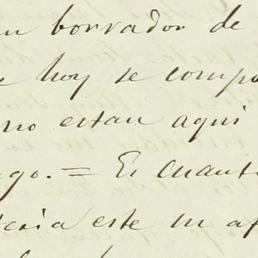 un borrador de
e hoy se compo
no estan aqui
go. = En cuant
este un a